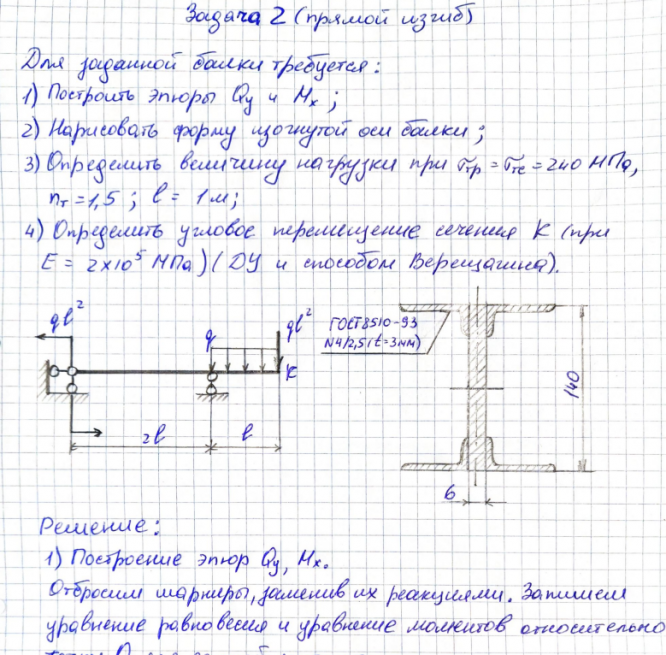 Задача 2 (прямой изгиб)
Для заданной балки требуется:
1) Построить эпюры Qy и Mx;
2) Нарисовать форму изогнутой оси балки;
3) Определить величину нагрузки при σтр = σтс = 240 МПа,
nт = 1,5 ; l = 1м;
4) Определить угловое перемещение сечения K (при
E = 2×10⁵ МПа) (ДУ и способом Верещагина).
ql²
q
ql²
K
2l
l
ГОСТ 8510-93
N4/2,5 (t=3мм)
140
6
Решение:
1) Построение эпюр Qy, Mx.
Отбросим шарниры, заменив их реакциями. Запишем
уравнение равновесия и уравнение моментов относительно